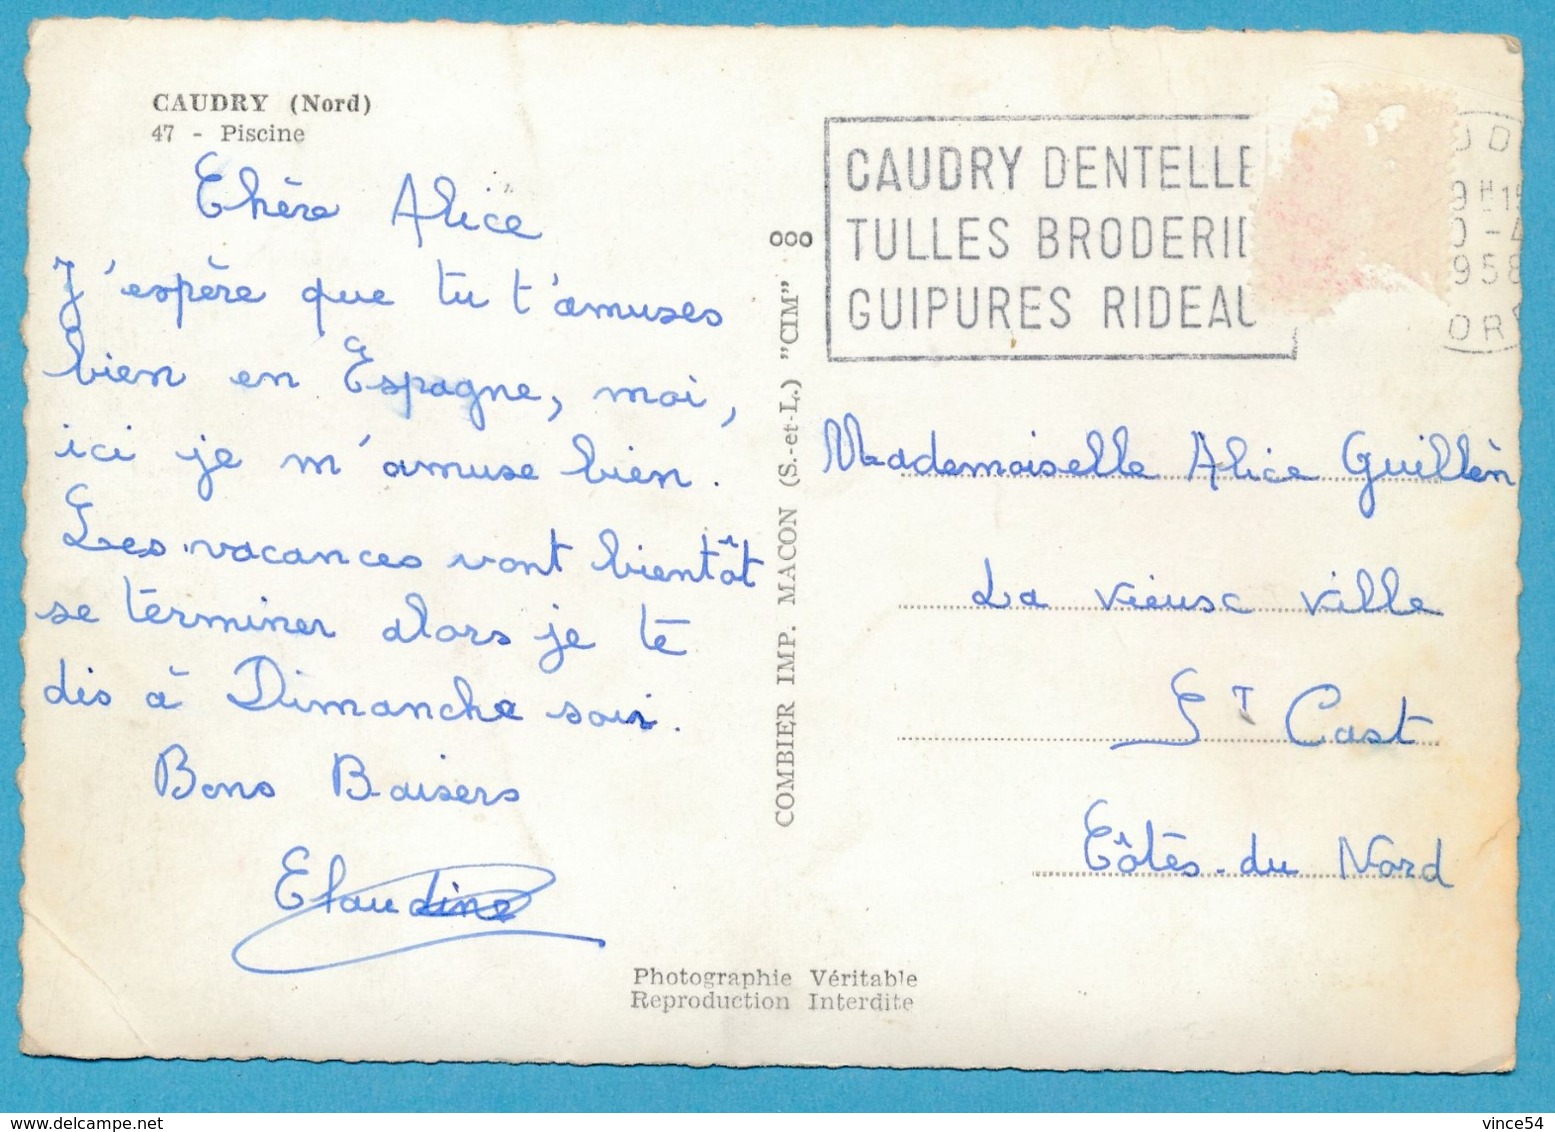 CAUDRY (Nord)
47 - Piscine
Chère Alice
J'espère que tu t'amuses
bien en Espagne, moi,
ici je m'amuse bien.
Les vacances vont bientôt
se terminer alors je te
dis à Dimanche soir.
Bons Baisers
Claudine
COMBIER IMP. MACON (S.-et-L.) "CIM"
CAUDRY DENTELLE
TULLES BRODERIE
GUIPURES RIDEAU
958
Mademoiselle Alice Guillèn
La vieusc ville
S T Cast
Côtes-du Nord
Photographie Véritable
Reproduction Interdite
vince54